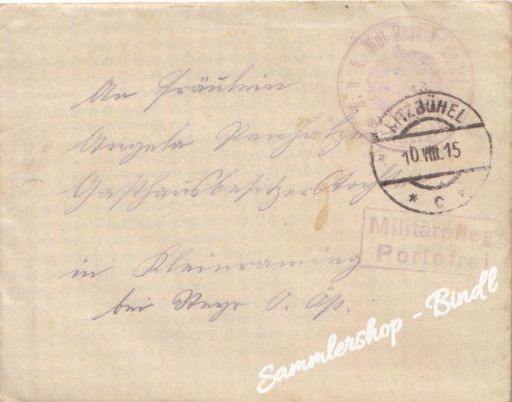 An Fräulein
Angela
Gasthausbesitzerstocht
in Kleinraming
bei Steyr O. Öst.
KITZBÜHEL
10.VIII.15
* c *
Militärpfleg
Portofrei
Sammlershop - Bindl